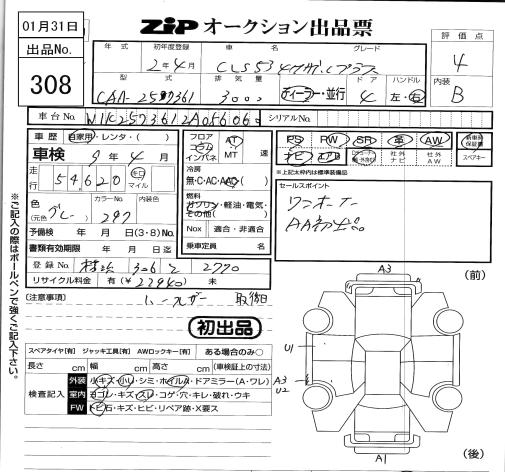 01月31日
出品No.
308
ZiP オークション出品票
評価点
4
内装
B
年式 初年度登録 車名 グレード
2年4月 CLS53 4マチックプラス
型式 排気量 ドア ハンドル
CAA-257361 3000 ディーラー・並行 4 左・右
車台No. W1K2573612A056060 シリアルNo.
車歴 自家用・レンタ・( )
車検 9年4月
走行 54,620 キロ マイル
色 (元色 グレー) カラーNo. 297 内装色
予備検 年 月 日(3・8)No.
書類有効期限 年 月 日迄
登録No. 横浜 306 2770
リサイクル料金 有(¥22940) 未
フロア コラム インパネ AT MT 速
冷房 無・C・AC・AAC( )
燃料 ガソリン・軽油・電気・その他( )
Nox 適合・非適合
乗車定員 名
PS PW SR 革 AW 新車時保証書
ナビ エアB 社外ナビ 社外AW スペアキー
*上記太枠内は装備条件
セールスポイント
ワンオーナー
AA初出品
(注意事項) ルーフレザー 取後日
初出品
スペアタイヤ[有] ジャッキ工具[有] AWロックキー[有] ある場合のみ○
長さ cm 幅 cm 高さ cm (車検証上の寸法)
検査記入
外装 小キズ・小凹・シミ・ホイルA・ドアミラー(A・ワレ)
室内 ヨゴレ・キズ・スレ・コゲ・穴・キレ・破れ・ウキ
FW トビ石・キズ・ヒビ・リペア跡・X要ス
※ご記入の際はボールペンで強くご記入下さい。
(前)
A3
U1
A3
U2
A1
(後)